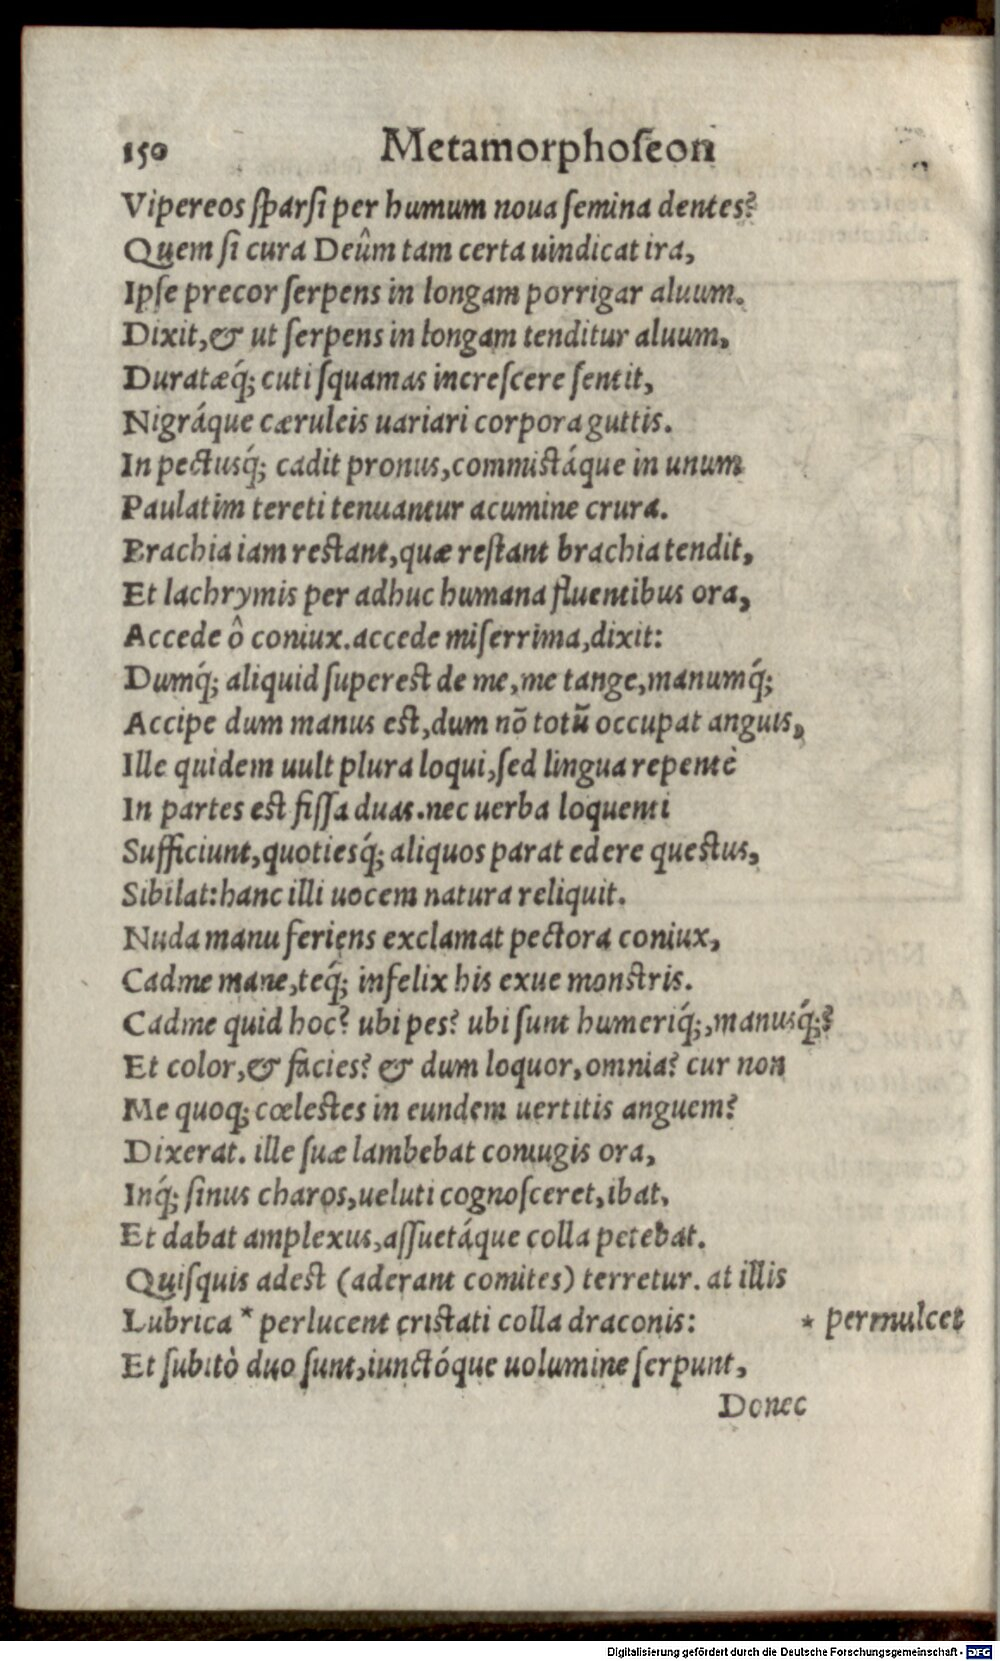 150 Metamorphoſeon
Vipereos ſparſi per humum noua ſemina dentes?
Quem ſi cura Deûm tam certa uindicat ira,
Ipſe precor ſerpens in longam porrigar aluum.
Dixit,& ut ſerpens in longam tenditur aluum,
Duratæq́; cuti ſquamas increſcere ſentit,
Nigráque cæruleis uariari corpora guttis.
In pectusq́; cadit pronus,commistáque in unum
Paulatim tereti tenuantur acumine crura.
Brachia iam restant,quæ reſtant brachia tendit,
Et lachrymis per adhuc humana fluentibus ora,
Accede ô coniux.accede miſerrima,dixit:
Dumq́; aliquid ſuperest de me,me tange,manumq́;
Accipe dum manus est,dum nō totū occupat anguis,
Ille quidem uult plura loqui,ſed lingua repentè
In partes est fiſſa duas.nec uerba loquenti
Sufficiunt,quotiesq́; aliquos parat edere questus,
Sibilat:hanc illi uocem natura reliquit.
Nuda manu feriens exclamat pectora coniux,
Cadme mane,teq́; infelix his exue monstris.
Cadme quid hoc? ubi pes? ubi ſunt humeriq́;,manusq́;?
Et color,& facies? & dum loquor,omnia? cur non
Me quoq; cœlestes in eundem uertitis anguem?
Dixerat. ille ſuæ lambebat coniugis ora,
Inq́; ſinus charos,ueluti cognoſceret,ibat,
Et dabat amplexus,aſſuetáque colla petebat.
Quiſquis adest (aderant comites) terretur. at illis
Lubrica * perlucent cristati colla draconis: * permulcet
Et ſubitò duo ſunt,iunctóque uolumine ſerpunt,
Donec
Digitalisierung gefördert durch die Deutsche Forschungsgemeinschaft - DFG